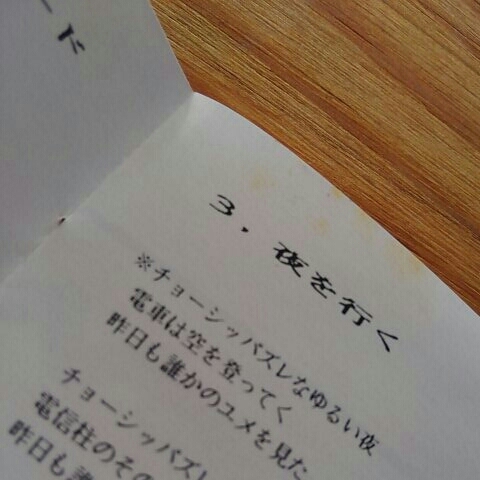 ード
3. 夜を行く
※チョーシッパズレなゆるい夜
電車は空を登ってく
昨日も誰かのユメを見た
チョーシッパズレ
電信柱のその
昨日も誰